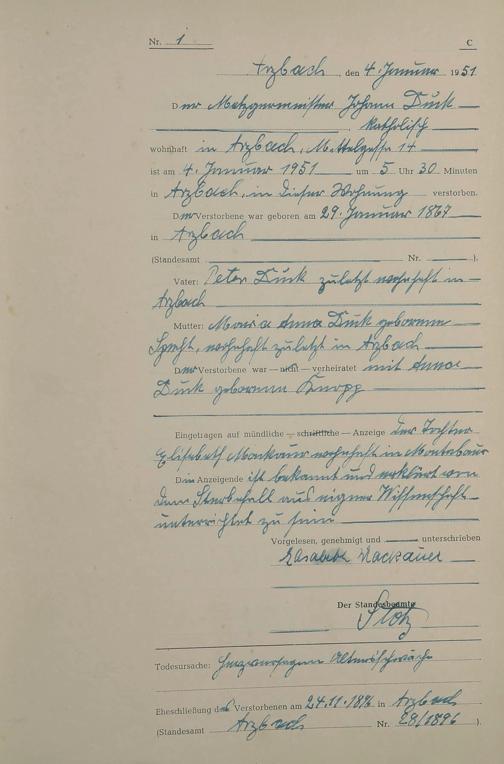 Nr. 1 C
Arzbach, den 4. Januar 1951
Der Metzgermeister Johann Dück
, katholisch
wohnhaft in Arzbach, Mittelgasse 14
ist am 4. Januar 1951 um 5 Uhr 30 Minuten
in Arzbach, in dieser Wohnung verstorben.
Der Verstorbene war geboren am 29. Januar 1867
in Arzbach
(Standesamt Nr. ).
Vater: Peter Dück zuletzt wohnhaft in
Arzbach
Mutter: Maria Anna Dück geborenen
Specht, wohnhaft zuletzt in Arzbach
Der Verstorbene war — nicht — verheiratet mit Anna
Dück geborenen Knopp
Eingetragen auf mündliche — schriftliche — Anzeige der Tochter
Elisabeth Mackauer wohnhaft in Montabaur
Die Anzeigende ist bekannt und erklärt von
dem Sterbefall aus eigner Wissenschaft
unterrichtet zu sein
Vorgelesen, genehmigt und unterschrieben
Elisabeth Mackauer
Der Standesbeamte
Stotz
Todesursache: Altersschwäche
Eheschließung des Verstorbenen am 24.11.1896 in Arzbach
(Standesamt Arzbach Nr. 28/1896 ).